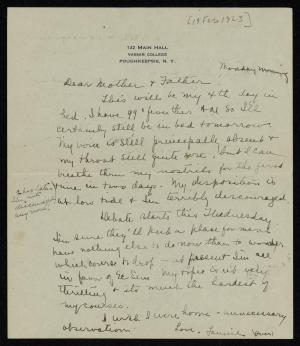 [19 Feb 1923]
142 MAIN HALL
VASSAR COLLEGE
POUGHKEEPSIE, N. Y.
Monday morning
Dear Mother & Father
This will be my 4th day in
bed. I have 99 + fever then + so I'll
certainly still be in bed tomorrow.
My voice is still principally absent &
my throat still quite sore, but I can
breathe thru my nostrils for the first
time in two days. My disposition is
at low tide & I'm terribly discouraged
any more.
Debate starts this Wednesday
I'm sure they'll keep a place for me. I
have nothing else to do now than to wonder
which course to drop — at present I'm all
in favor of Ec Sem. My topic is in very
thrilling & its much the hardest of
my courses.
I wish I were home — unnecessary
observation.
Love,